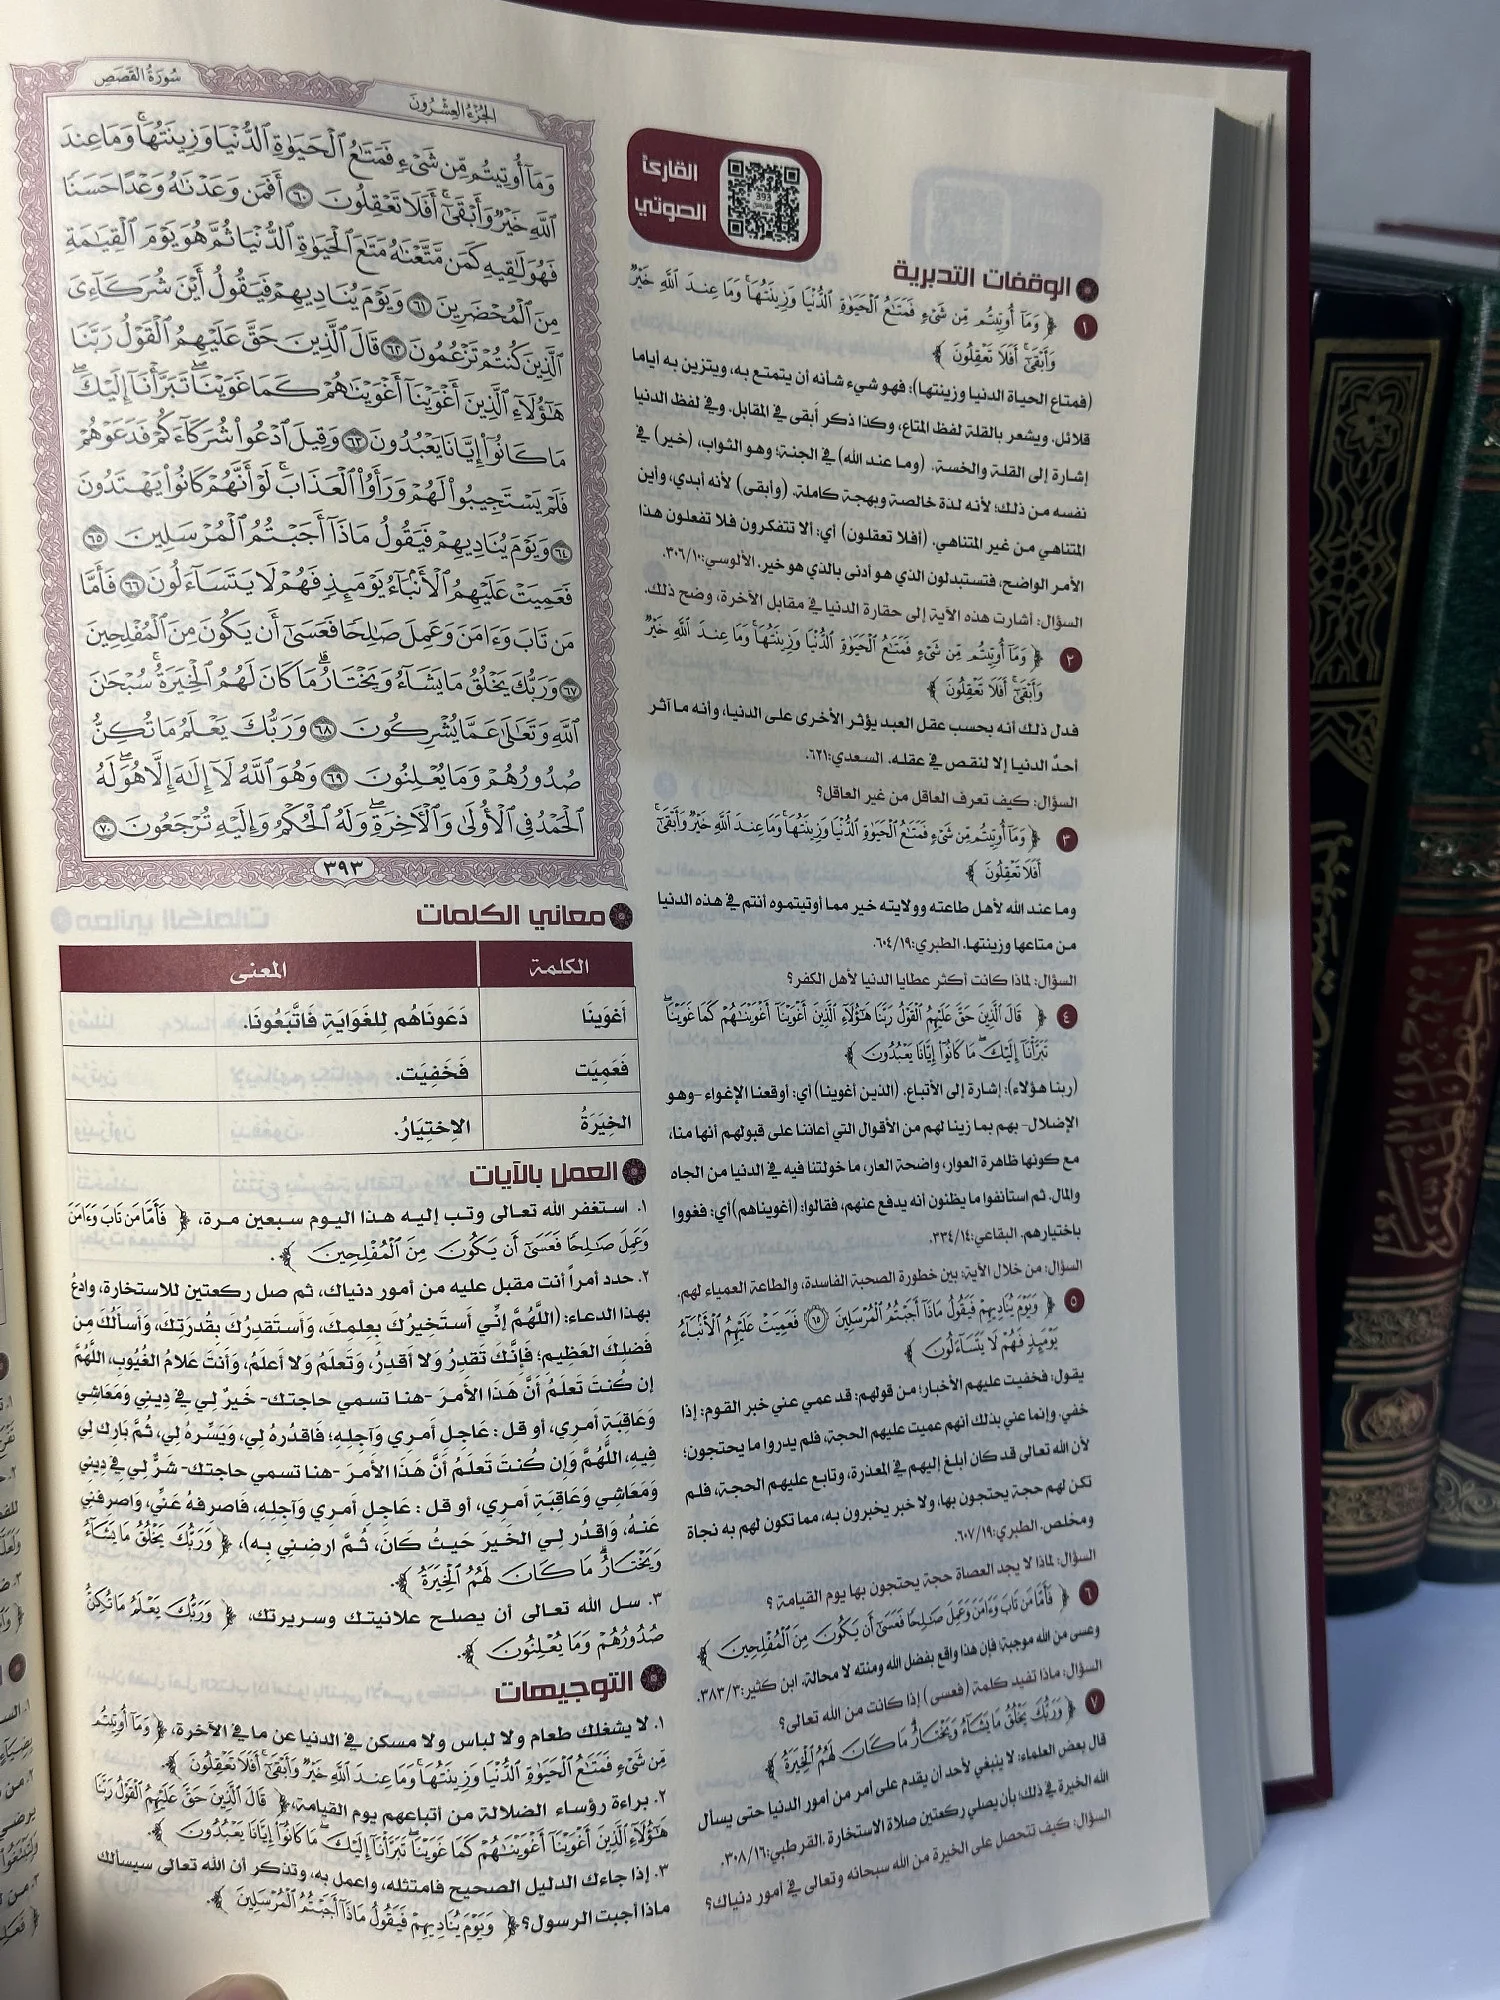 سُورَةُ القَصَصِ
الجُزْءُ العِشْرُونَ
وَمَآ أُوتِيتُم مِّن شَىْءٍ فَمَتَٰعُ ٱلْحَيَوٰةِ ٱلدُّنْيَا وَزِينَتُهَا ۚ وَمَا عِندَ
ٱللَّهِ خَيْرٌ وَأَبْقَىٰٓ ۚ أَفَلَا تَعْقِلُونَ ٦٠ أَفَمَن وَعَدْنَٰهُ وَعْدًا حَسَنًا
فَهُوَ لَٰقِيهِ كَمَن مَّتَّعْنَٰهُ مَتَٰعَ ٱلْحَيَوٰةِ ٱلدُّنْيَا ثُمَّ هُوَ يَوْمَ ٱلْقِيَٰمَةِ
مِنَ ٱلْمُحْضَرِينَ ٦١ وَيَوْمَ يُنَادِيهِمْ فَيَقُولُ أَيْنَ شُرَكَآءِىَ
ٱلَّذِينَ كُنتُمْ تَزْعُمُونَ ٦٢ قَالَ ٱلَّذِينَ حَقَّ عَلَيْهِمُ ٱلْقَوْلُ رَبَّنَا
هَٰٓؤُلَآءِ ٱلَّذِينَ أَغْوَيْنَآ أَغْوَيْنَٰهُمْ كَمَا غَوَيْنَا ۖ تَبَرَّأْنَآ إِلَيْكَ ۖ
مَا كَانُوٓا۟ إِيَّانَا يَعْبُدُونَ ٦٣ وَقِيلَ ٱدْعُوا۟ شُرَكَآءَكُمْ فَدَعَوْهُمْ
فَلَمْ يَسْتَجِيبُوا۟ لَهُمْ وَرَأَوُا۟ ٱلْعَذَابَ ۚ لَوْ أَنَّهُمْ كَانُوا۟ يَهْتَدُونَ
٦٤ وَيَوْمَ يُنَادِيهِمْ فَيَقُولُ مَاذَآ أَجَبْتُمُ ٱلْمُرْسَلِينَ ٦٥
فَعَمِيَتْ عَلَيْهِمُ ٱلْأَنۢبَآءُ يَوْمَئِذٍ فَهُمْ لَا يَتَسَآءَلُونَ ٦٦ فَأَمَّا
مَن تَابَ وَءَامَنَ وَعَمِلَ صَٰلِحًا فَعَسَىٰٓ أَن يَكُونَ مِنَ ٱلْمُفْلِحِينَ
٦٧ وَرَبُّكَ يَخْلُقُ مَا يَشَآءُ وَيَخْتَارُ ۗ مَا كَانَ لَهُمُ ٱلْخِيَرَةُ ۚ سُبْحَٰنَ
ٱللَّهِ وَتَعَٰلَىٰ عَمَّا يُشْرِكُونَ ٦٨ وَرَبُّكَ يَعْلَمُ مَا تُكِنُّ
صُدُورُهُمْ وَمَا يُعْلِنُونَ ٦٩ وَهُوَ ٱللَّهُ لَآ إِلَٰهَ إِلَّا هُوَ ۖ لَهُ
ٱلْحَمْدُ فِى ٱلْأُولَىٰ وَٱلْءَاخِرَةِ ۖ وَلَهُ ٱلْحُكْمُ وَإِلَيْهِ تُرْجَعُونَ ٧٠
٣٩٣
القارئ
الصوتي
393
الوقفات التدبرية
١ ﴿ وَمَآ أُوتِيتُم مِّن شَىْءٍ فَمَتَٰعُ ٱلْحَيَوٰةِ ٱلدُّنْيَا وَزِينَتُهَا ۚ وَمَا عِندَ ٱللَّهِ خَيْرٌ
وَأَبْقَىٰٓ ۚ أَفَلَا تَعْقِلُونَ ﴾
(فمتاع الحياة الدنيا وزينتها): فهو شيء شأنه أن يتمتع به، ويتزين به أياما
قلائل. ويشعر بالقلة لفظ المتاع، وكذا ذكر أبقى في المقابل. وفي لفظ الدنيا
إشارة إلى القلة والخسة. (وما عند الله) في الجنة؛ وهو الثواب، (خير) في
نفسه من ذلك؛ لأنه لذة خالصة وبهجة كاملة. (وأبقى) لأنه أبدي، وأين
المتناهي من غير المتناهي. (أفلا تعقلون) أي: ألا تتفكرون فلا تفعلون هذا
الأمر الواضح، فتستبدلون الذي هو أدنى بالذي هو خير. الألوسي:٣٠٦/١٠.
السؤال: أشارت هذه الآية إلى حقارة الدنيا في مقابل الآخرة، وضح ذلك.
٢ ﴿ وَمَآ أُوتِيتُم مِّن شَىْءٍ فَمَتَٰعُ ٱلْحَيَوٰةِ ٱلدُّنْيَا وَزِينَتُهَا ۚ وَمَا عِندَ ٱللَّهِ خَيْرٌ
وَأَبْقَىٰٓ ۚ أَفَلَا تَعْقِلُونَ ﴾
فدل ذلك أنه بحسب عقل العبد يؤثر الأخرى على الدنيا، وأنه ما آثر
أحدٌ الدنيا إلا لنقص في عقله. السعدي:٦٢١.
السؤال: كيف تعرف العاقل من غير العاقل؟
٣ ﴿ وَمَآ أُوتِيتُم مِّن شَىْءٍ فَمَتَٰعُ ٱلْحَيَوٰةِ ٱلدُّنْيَا وَزِينَتُهَا ۚ وَمَا عِندَ ٱللَّهِ خَيْرٌ وَأَبْقَىٰٓ ۚ
أَفَلَا تَعْقِلُونَ ﴾
وما عند الله لأهل طاعته وولايته خير مما أوتيتموه أنتم في هذه الدنيا
من متاعها وزينتها. الطبري:٦٠٤/١٩.
السؤال: لماذا كانت أكثر عطايا الدنيا لأهل الكفر؟
٤ ﴿ قَالَ ٱلَّذِينَ حَقَّ عَلَيْهِمُ ٱلْقَوْلُ رَبَّنَا هَٰٓؤُلَآءِ ٱلَّذِينَ أَغْوَيْنَآ أَغْوَيْنَٰهُمْ كَمَا غَوَيْنَا ۖ
تَبَرَّأْنَآ إِلَيْكَ ۖ مَا كَانُوٓا۟ إِيَّانَا يَعْبُدُونَ ﴾
(ربنا هؤلاء): إشارة إلى الأتباع. (الذين أغوينا) أي: أوقعنا الإغواء -وهو
الإضلال- بهم بما زينا لهم من الأقوال التي أعاننا على قبولهم أنها منا،
مع كونها ظاهرة العوار، واضحة العار، ما خولتنا فيه في الدنيا من الجاه
والمال. ثم استأنفوا ما يظنون أنه يدفع عنهم، فقالوا: (أغويناهم) أي: فغووا
باختيارهم. البقاعي:٣٣٤/١٤.
السؤال: من خلال الآية: بين خطورة الصحبة الفاسدة، والطاعة العمياء لهم.
٥ ﴿ وَيَوْمَ يُنَادِيهِمْ فَيَقُولُ مَاذَآ أَجَبْتُمُ ٱلْمُرْسَلِينَ ٦٥ فَعَمِيَتْ عَلَيْهِمُ ٱلْأَنۢبَآءُ
يَوْمَئِذٍ فَهُمْ لَا يَتَسَآءَلُونَ ﴾
يقول: فخفيت عليهم الأخبار؛ من قولهم: قد عمي عني خبر القوم: إذا
خفي. وإنما عني بذلك أنهم عميت عليهم الحجة، فلم يدروا ما يحتجون؛
لأن الله تعالى قد كان أبلغ إليهم في المعذرة، وتابع عليهم الحجة، فلم
تكن لهم حجة يحتجون بها، ولا خبر يخبرون به، مما تكون لهم به نجاة
ومخلص. الطبري:٦٠٧/١٩.
السؤال: لماذا لا يجد العصاة حجة يحتجون بها يوم القيامة ؟
٦ ﴿ فَأَمَّا مَن تَابَ وَءَامَنَ وَعَمِلَ صَٰلِحًا فَعَسَىٰٓ أَن يَكُونَ مِنَ ٱلْمُفْلِحِينَ ﴾
وعسى من الله موجبة؛ فإن هذا واقع بفضل الله ومنته لا محالة. ابن كثير:٣٨٣/٣.
السؤال: ماذا تفيد كلمة (فعسى) إذا كانت من الله تعالى؟
٧ ﴿ وَرَبُّكَ يَخْلُقُ مَا يَشَآءُ وَيَخْتَارُ ۗ مَا كَانَ لَهُمُ ٱلْخِيَرَةُ ﴾
قال بعض العلماء: لا ينبغي لأحد أن يقدم على أمر من أمور الدنيا حتى يسأل
الله الخيرة في ذلك؛ بأن يصلي ركعتين صلاة الاستخارة .القرطبي:٣٠٨/١٦.
السؤال: كيف تتحصل على الخيرة من الله سبحانه وتعالى في أمور دنياك؟
معاني الكلمات
الكلمة المعنى
أَغْوَينَا دَعَونَاهُم لِلغَوَايَةِ فَاتَّبَعُونَا.
فَعَمِيَت فَخَفِيَت.
الخِيَرَةُ الاِختِيَارُ.
العمل بالآيات
١. استغفر الله تعالى وتب إليه هذا اليوم سبعين مرة، ﴿ فَأَمَّا مَن تَابَ وَءَامَنَ
وَعَمِلَ صَٰلِحًا فَعَسَىٰٓ أَن يَكُونَ مِنَ ٱلْمُفْلِحِينَ ﴾.
٢. حدد أمراً أنت مقبل عليه من أمور دنياك، ثم صل ركعتين للاستخارة، وادعُ
بهذا الدعاء: (اللَّهُمَّ إنِّي أَستَخِيرُكَ بِعِلمِكَ، وَأَستَقدِرُكَ بِقُدرَتِكَ، وَأَسأَلُكَ مِن
فَضلِكَ العَظِيمِ؛ فَإِنَّكَ تَقدِرُ وَلا أَقدِرُ، وَتَعلَمُ وَلا أَعلَمُ، وَأَنتَ عَلامُ الغُيُوبِ، اللَّهُمَّ
إن كُنتَ تَعلَمُ أنَّ هَذَا الأَمرَ -هنا تسمي حاجتك- خَيرٌ لِي فِي دِينِي وَمَعَاشِي
وَعَاقِبَةِ أَمرِي، أو قل : عَاجِلِ أَمرِي وَآجِلِهِ؛ فَاقدُرهُ لِي، وَيَسِّرهُ لِي، ثُمَّ بَارِك لِي
فِيهِ، اللَّهُمَّ وَإِن كُنتَ تَعلَمُ أَنَّ هَذَا الأَمرَ -هنا تسمي حاجتك- شرٌّ لِي فِي دِينِي
وَمَعَاشِي وَعَاقِبَةِ أَمرِي، أو قل : عَاجِلِ أَمرِي وَآجِلِهِ، فَاصرِفهُ عَنِّي، وَاصرِفنِي
عَنهُ، وَاقدُر لِي الخَيرَ حَيثُ كَانَ، ثُمَّ ارضِنِي بِه)، ﴿ وَرَبُّكَ يَخْلُقُ مَا يَشَآءُ
وَيَخْتَارُ ۗ مَا كَانَ لَهُمُ ٱلْخِيَرَةُ ﴾.
٣. سل الله تعالى أن يصلح علانيتك وسريرتك، ﴿ وَرَبُّكَ يَعْلَمُ مَا تُكِنُّ
صُدُورُهُمْ وَمَا يُعْلِنُونَ ﴾.
التوجيهات
١. لا يشغلك طعام ولا لباس ولا مسكن في الدنيا عن ما في الآخرة، ﴿ وَمَآ أُوتِيتُم
مِّن شَىْءٍ فَمَتَٰعُ ٱلْحَيَوٰةِ ٱلدُّنْيَا وَزِينَتُهَا ۚ وَمَا عِندَ ٱللَّهِ خَيْرٌ وَأَبْقَىٰٓ ۚ أَفَلَا تَعْقِلُونَ ﴾.
٢. براءة رؤساء الضلالة من أتباعهم يوم القيامة، ﴿ قَالَ ٱلَّذِينَ حَقَّ عَلَيْهِمُ ٱلْقَوْلُ رَبَّنَا
هَٰٓؤُلَآءِ ٱلَّذِينَ أَغْوَيْنَآ أَغْوَيْنَٰهُمْ كَمَا غَوَيْنَا ۖ تَبَرَّأْنَآ إِلَيْكَ ۖ مَا كَانُوٓا۟ إِيَّانَا يَعْبُدُونَ ﴾.
٣. إذا جاءك الدليل الصحيح فامتثله، واعمل به، وتذكر أن الله تعالى سيسألك
ماذا أجبت الرسول؟ ﴿ وَيَوْمَ يُنَادِيهِمْ فَيَقُولُ مَاذَآ أَجَبْتُمُ ٱلْمُرْسَلِينَ ﴾.